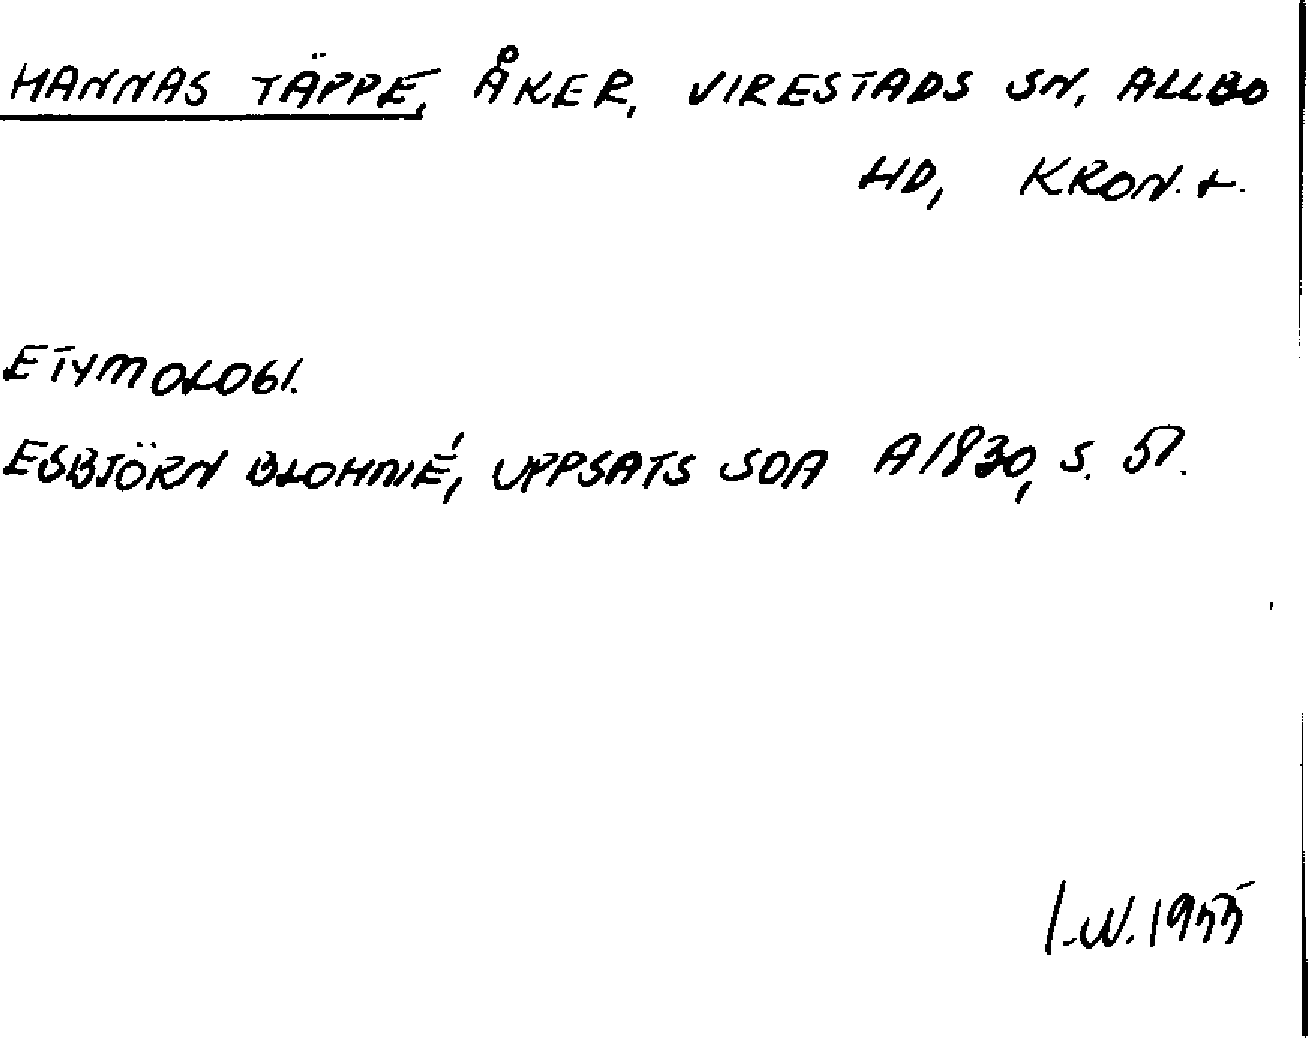 HANNAS TÄPPE, ÅKER, VIRESTADS SN, ALLBO
HD, KRON. L.
ETYMOLOGI.
ESBJÖRN BLOHNIÉ, UPPSATS SOA A1830, S. 51.
I.W. 1955